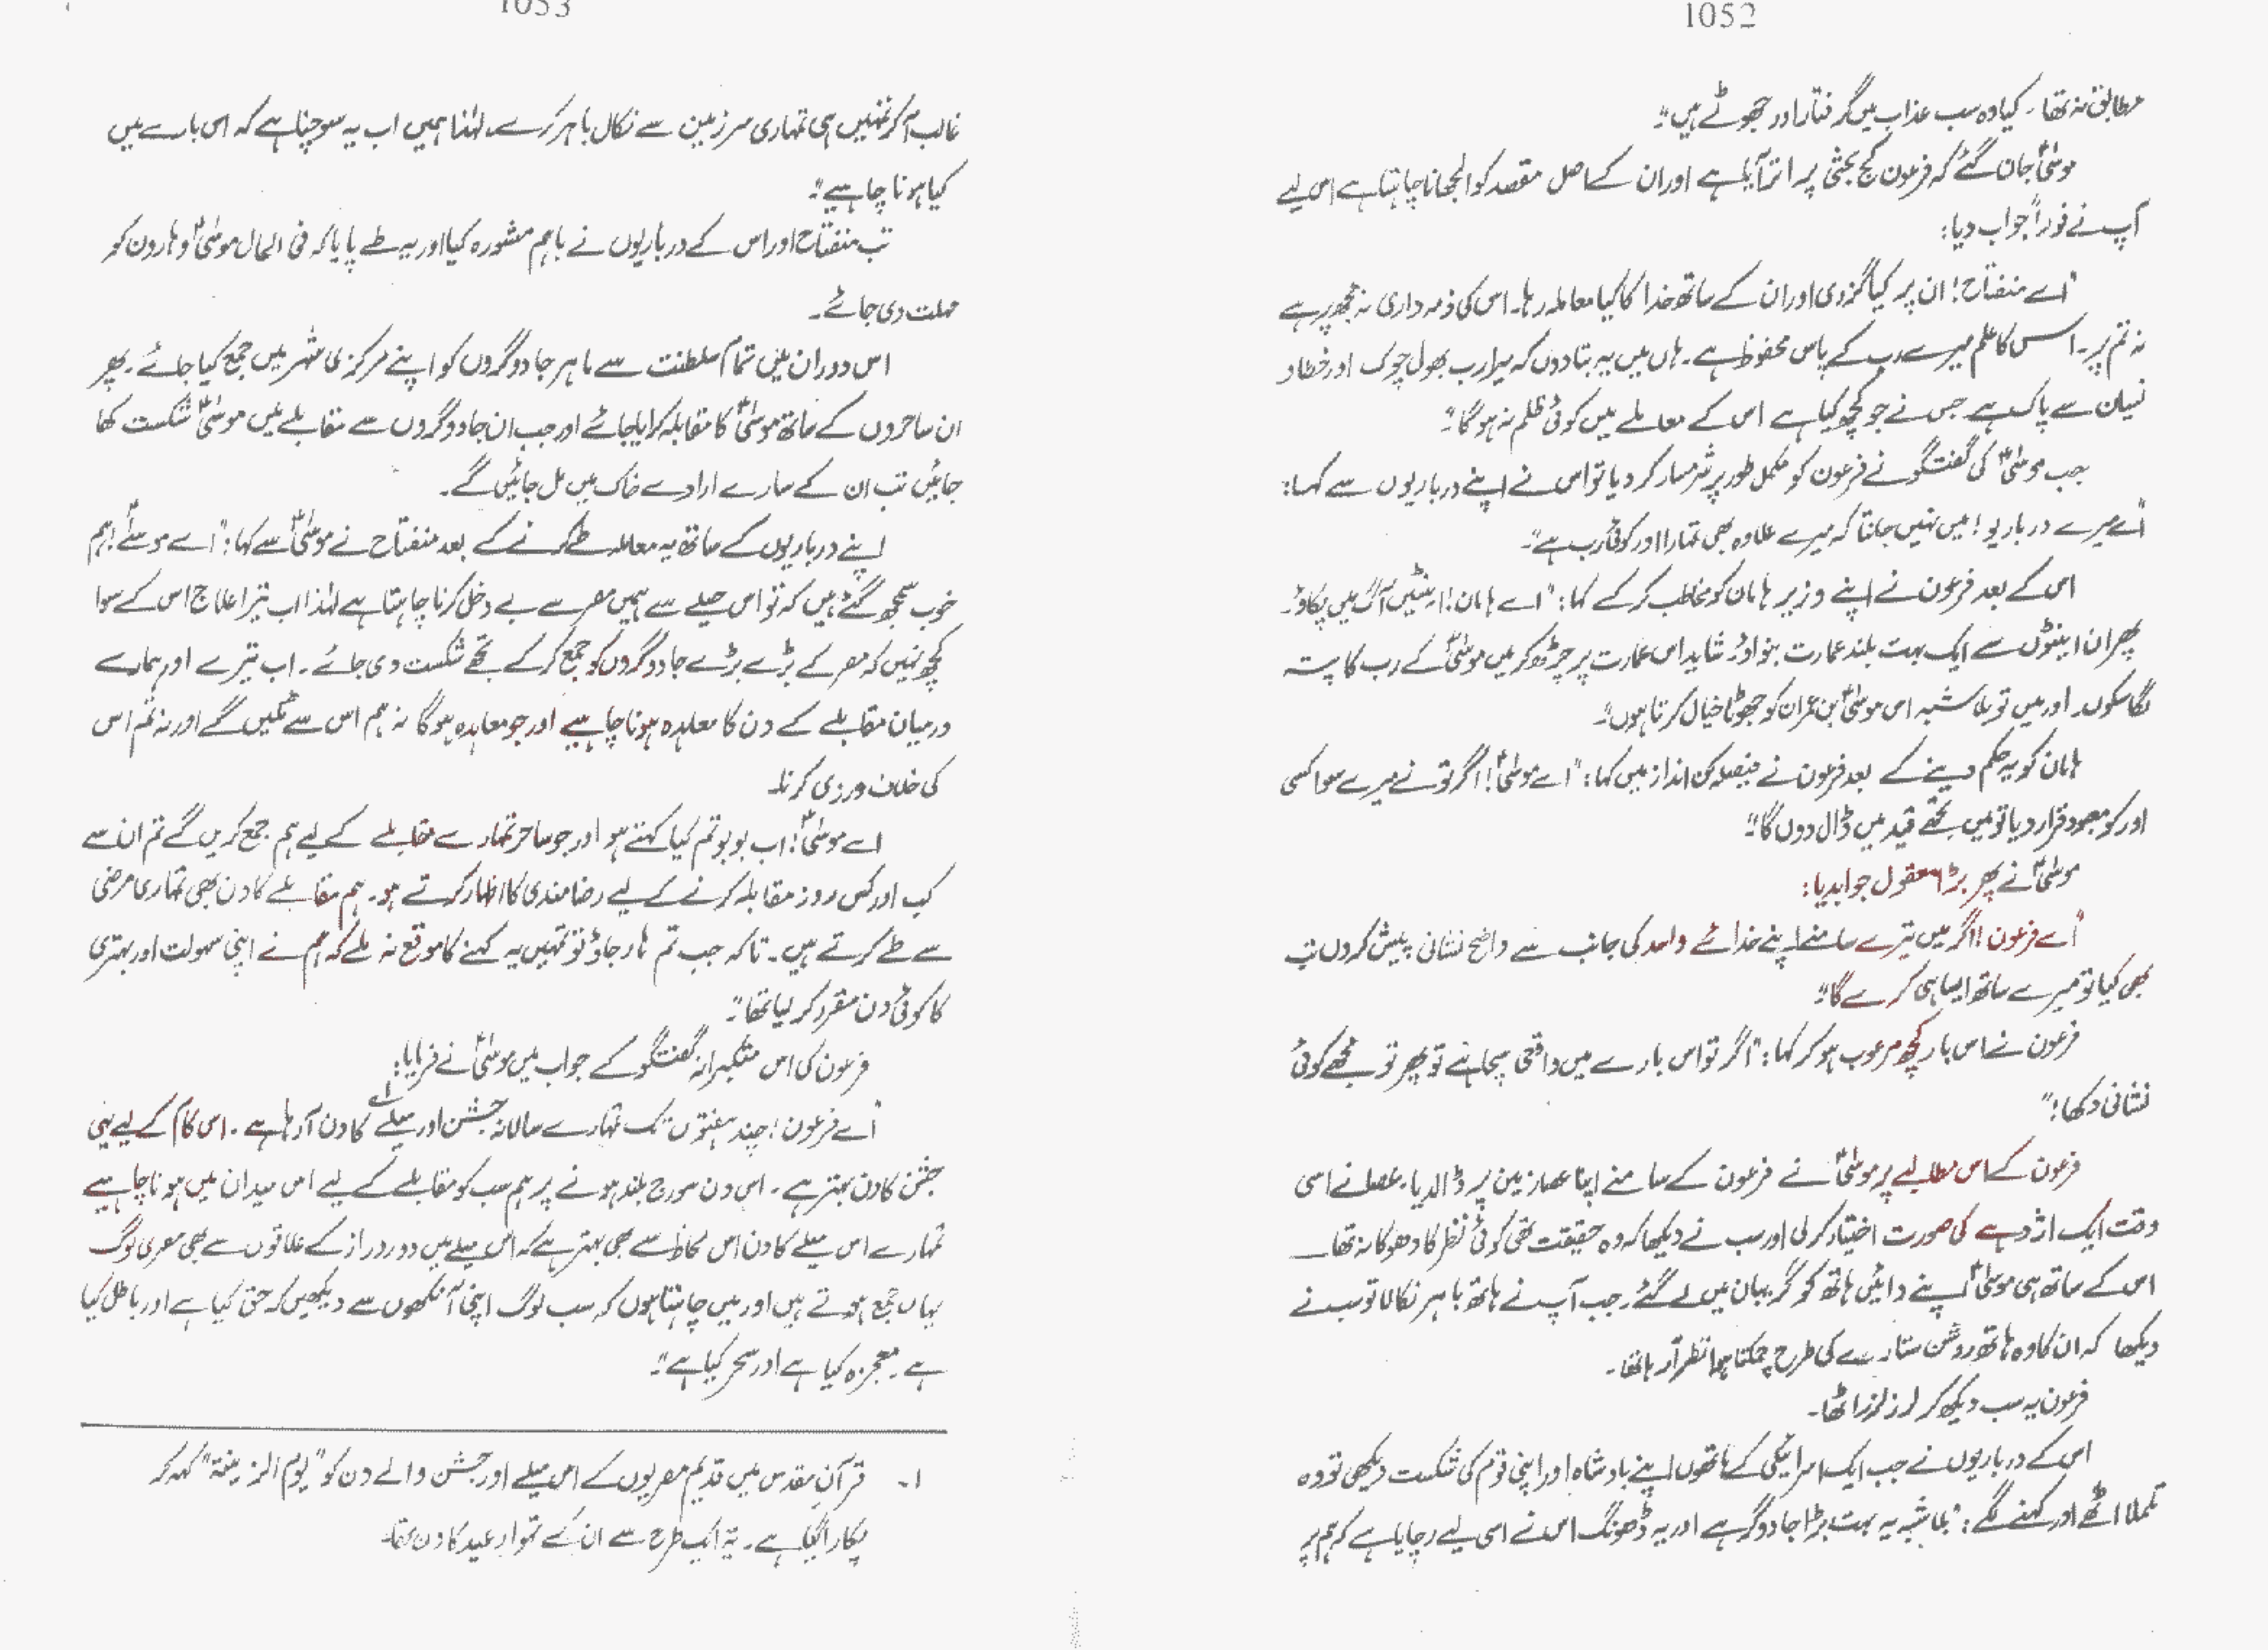 1052
مطابق نہ تھا۔ کیا وہ سب عذاب میں گرفتار اور جھوٹے ہیں"۔
موسٰیؑ جان گئے کہ فرعون کج بحثی پر اتر آیا ہے اور ان کے اصل مقصد کو الجھانا چاہتا ہے اس لیے
آپ نے فوراً جواب دیا:
"اے منفتاح! ان پر کیا گزری اور ان کے ساتھ خدا کا کیا معاملہ رہا۔ اس کی ذمہ داری نہ مجھ پر ہے
نہ تم پر۔ اس کا علم میرے رب کے پاس محفوظ ہے۔ ہاں میں یہ بتا دوں کہ میرا رب بھول چوک اور خطا و
نسیان سے پاک ہے جس نے جو کچھ کیا ہے اس کے معاملے میں کوئی ظلم نہ ہوگا"۔
جب موسٰیؑ کی گفتگو نے فرعون کو مکمل طور پر شرمسار کر دیا تو اس نے اپنے درباریوں سے کہا:
"اے میرے درباریو! میں نہیں جانتا کہ میرے علاوہ بھی تمہارا اور کوئی رب ہے"۔
اس کے بعد فرعون نے اپنے وزیر ہامان کو مخاطب کر کے کہا: "اے ہامان! اینٹیں آگ میں پکاؤ۔
پھر ان اینٹوں سے ایک بہت بلند عمارت بنواؤ۔ شاید اس عمارت پر چڑھ کر میں موسٰیؑ کے رب کا پتہ
لگا سکوں۔ اور میں تو بلاشبہ اس موسٰیؑ بن عمران کو جھوٹا خیال کرتا ہوں"۔
ہامان کو یہ حکم دینے کے بعد فرعون نے فیصلہ کن انداز میں کہا: "اے موسٰیؑ! اگر تو نے میرے سوا کسی
اور کو معبود قرار دیا تو میں تجھے قید میں ڈال دوں گا"۔
موسٰیؑ نے پھر بڑا معقول جواب دیا:
"اے فرعون! اگر میں تیرے سامنے اپنے خدائے واحد کی جانب سے واضح نشانی پیش کروں تب
بھی کیا تو میرے ساتھ ایسا ہی کرے گا"۔
فرعون نے اس بار کچھ مرعوب ہو کر کہا: "اگر تو اس بارے میں واقعی سچا ہے تو پھر تو مجھے کوئی
نشانی دکھا؛"
فرعون کے اس مطالبے پر موسٰیؑ نے فرعون کے سامنے اپنا عصا زمین پر ڈال دیا۔ عصا نے اسی
وقت ایک اژدہے کی صورت اختیار کر لی اور سب نے دیکھا کہ وہ حقیقت تھی کوئی نظر کا دھوکا نہ تھا۔
اس کے ساتھ ہی موسٰیؑ اپنے دائیں ہاتھ کو گریبان میں لے گئے۔ جب آپ نے ہاتھ باہر نکالا تو سب نے
دیکھا کہ ان کا وہ ہاتھ روشن ستارے کی طرح چمکتا ہوا نظر آ رہا تھا۔
فرعون یہ سب دیکھ کر لرز لرز اٹھا۔
اس کے درباریوں نے جب ایک اسرائیلی کے ہاتھوں اپنے بادشاہ اور اپنی قوم کی شکست دیکھی تو وہ
تلملا اٹھے اور کہنے لگے: "بلاشبہ یہ بہت بڑا جادوگر ہے اور یہ ڈھونگ اس نے اسی لیے رچایا ہے کہ ہم پر
1053
غالب آ کر تمہیں ہی تمہاری سرزمین سے نکال باہر کرے، لہٰذا ہمیں اب یہ سوچنا ہے کہ اس بارے میں
کیا ہونا چاہیے"۔
تب منفتاح اور اس کے درباریوں نے باہم مشورہ کیا اور یہ طے پایا کہ فی الحال موسٰیؑ و ہارون کو
مہلت دی جائے۔
اس دوران میں تمام سلطنت سے ماہر جادوگروں کو اپنے مرکزی شہر میں جمع کیا جائے۔ پھر
ان ساحروں کے ساتھ موسٰیؑ کا مقابلہ کرایا جائے اور جب ان جادوگروں سے مقابلے میں موسٰیؑ شکست کھا
جائیں تب ان کے سارے ارادے خاک میں مل جائیں گے۔
اپنے درباریوں کے ساتھ یہ معاملہ طے کرنے کے بعد منفتاح نے موسٰیؑ سے کہا: "اے موسٰیؑ! ہم
خوب سمجھ گئے ہیں کہ تو اس حیلے سے ہمیں مصر سے بے دخل کرنا چاہتا ہے لہٰذا اب تیرا علاج اس کے سوا
کچھ نہیں کہ مصر کے بڑے بڑے جادوگروں کو جمع کر کے تجھے شکست دی جائے۔ اب تیرے اور ہمارے
درمیان مقابلے کے دن کا معاہدہ ہونا چاہیے اور جو معاہدہ ہوگا نہ ہم اس سے ٹلیں گے اور نہ تم اس
کی خلاف ورزی کرنا۔
اے موسٰیؑ! اب بولو تم کیا کہتے ہو اور جو ساحر تمہارے مقابلے کے لیے ہم جمع کریں گے تم ان سے
کب اور کس روز مقابلہ کرنے کے لیے رضامندی کا اظہار کرتے ہو۔ ہم مقابلے کا دن بھی تمہاری مرضی
سے طے کرتے ہیں۔ تاکہ جب تم ہار جاؤ تو تمہیں یہ کہنے کا موقع نہ ملے کہ ہم نے اپنی سہولت اور بہتری
کا کوئی دن مقرر کر لیا تھا"۔
فرعون کی اس متکبرانہ گفتگو کے جواب میں موسٰیؑ نے فرمایا:
"اے فرعون! چند ہفتوں تک تمہارے سالانہ جشن اور میلے۱؎ کا دن آ رہا ہے۔ اس کام کے لیے یہی
جشن کا دن بہتر ہے۔ اس دن سورج بلند ہونے پر ہم سب کو مقابلے کے لیے اس میدان میں ہونا چاہیے
تمہارے اس میلے کا دن اس لحاظ سے بھی بہتر ہے کہ اس میلے میں دور دراز کے علاقوں سے بھی مصری لوگ
یہاں جمع ہوتے ہیں اور میں چاہتا ہوں کہ سب لوگ اپنی آنکھوں سے دیکھیں کہ حق کیا ہے اور باطل کیا
ہے۔ معجزہ کیا ہے اور سحر کیا ہے"۔
۱۔ قرآنِ مقدس میں قدیم مصریوں کے اس میلے اور جشن والے دن کو "یوم الزینۃ" کہہ کر
پکارا گیا ہے۔ یہ ایک طرح سے ان کے تہوار عید کا دن تھا۔